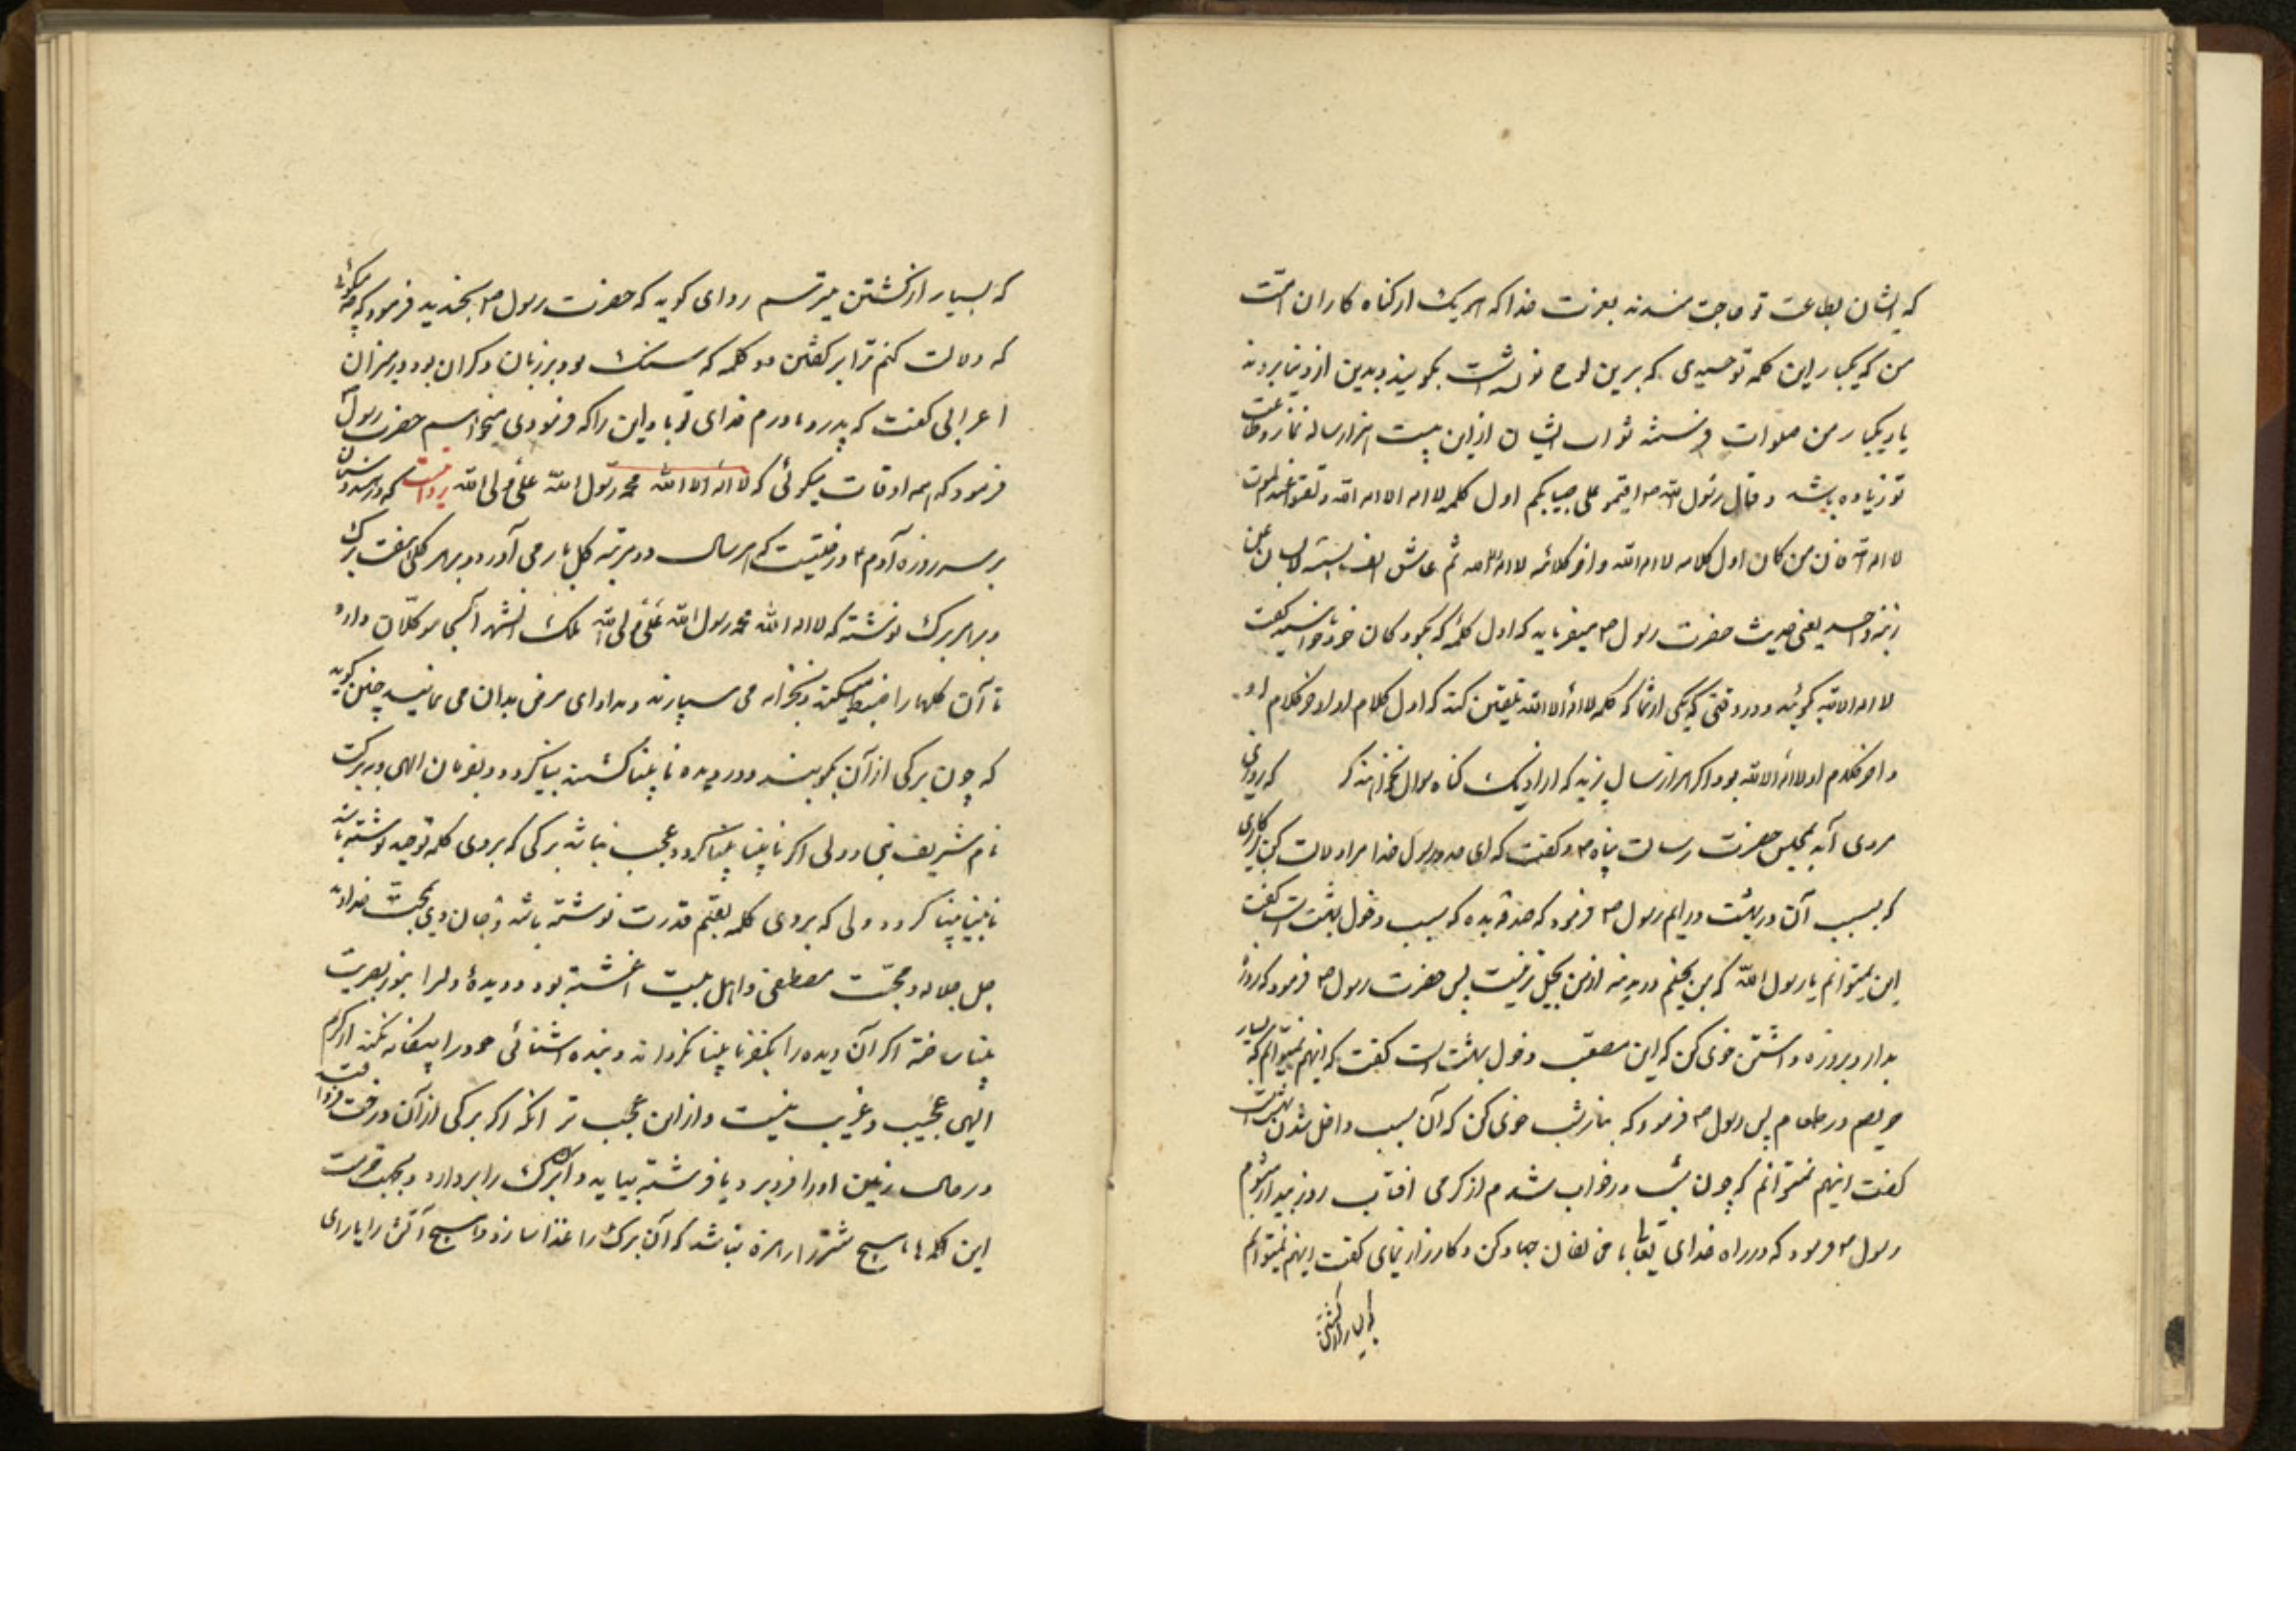 که ایشان بطاعت تو حاجت مندند بعزت خدا که هر یک از کناه کاران امت
من که یکبار این کلمه توحیدی که برین لوح نوشته است بکویند و بدین از دنیا بروند
یا یکبار من صلوات فرستند ثواب ایشان ازین بیست هزار ساله نماز و طاعت
تو زیاده باشد و قال رسول الله ص علی صبیانکم اول کلمه لا اله الا الله و لقنوا عند الموت
لا اله الا الله فان من کان اول کلامه لا اله الا الله و اخر کلامه لا اله الا الله ثم عاش الف سنة لا یسال عن
ذنب واحد یعنی حدیث حضرت رسول ص میفرماید که اول کلمه که بکودکان خود
لا اله الا الله کوئید و در وقتی که یکی از شما که کلمه لا اله الا الله تلقین کنید که اول کلام او
و اخر کلام او لا اله الا الله بود اگر هزار سال بزید که او را از یک کناه سوال نخواهند کرد که روزی
مردی آمد بمجلس حضرت رسالت پناه ص و کفت که ای رسول خدا مرا دلالت کن
که بسبب آن در بهشت در ایم رسول ص فرمود که صدقه بده که سبب دخول بهشت است کفت
این نمیتوانم یا رسول الله که من بخیلم و در مدینه از من بخیل تر نیست پس حضرت رسول ص فرمود که روزه
بدار و بروزه داشتن خوی کن که این دخول بهشت است کفت که اینهم نمیتوانم که بسیار
حریصم در طعام پس رسول ص فرمود که بنماز شب خوی کن که آن سبب داخل شدن بهشت است
کفت اینهم نمیتوانم که چون شب در خواب شدم از کرمی افتاب روز بیدار میشوم
رسول ص فرمود که در راه خدای تعالی با مخالفان جهاد کن و کارزار نمای کفت اینهم نمیتوانم
که بسیار از کشتن
که بسیار از کشتن میترسم راوی کوید که حضرت رسول ص بخندید فرمود که چه میکوئی
که دلالت کنم ترا بر کفتن دو کلمه که سبک بود بر زبان و کران بود در میزان
اعرابی کفت که پدر و مادرم فدای تو باد این را که فرمودی میخواهم حضرت رسول
فرمود که همه اوقات میکوئی که لا اله الا الله محمد رسول الله علی ولی الله روایت که در هندوستان
بر سر روزه آدم ع درختیست که هر سال دو مرتبه کل بار می آورد و بر هر کلی هفت برک
و بر هر برک نوشته که لا اله الا الله محمد رسول الله علی ولی الله ملک آنجا موکلان دارد
تا آن کلها را ضبط میکنند و بخزانه می سپارند و مداوای مرض بدان می نمایند چنین کویند
که چون برکی از آن بکوبند و در دیده نابینا کشند بینا کردد و بفرمان الهی و ببرکت
نام شریف ولی اگر نابینا بینا کردد عجب نباشد برکی که بروی کلمه توحید نوشته باشد
نابینا بینا کردد دلی که بروی کلمه بقلم قدرت نوشته باشد و جان وی بمحبت خداوند
جل جلاله و محبت مصطفی و اهل بیت اغشته بود و دیدهٔ دل را بنور بصیرت
بینا ساخته اگر آن دیده را بکفر نابینا نکرداند و بنده اشنائی خود را بیکانه نکند از کرم
الهی عجیب و غریب نیست و از این عجب تر انکه اگر برکی از آن درخت
در حال زمین او را فرو برد یا فرشته بیاید و آن برک را بردارد و بجهت حرمت
این کلمه ها هیچ شتر را زهره نباشد که آن برک را غذا سازد و هیچ آتش را یارای